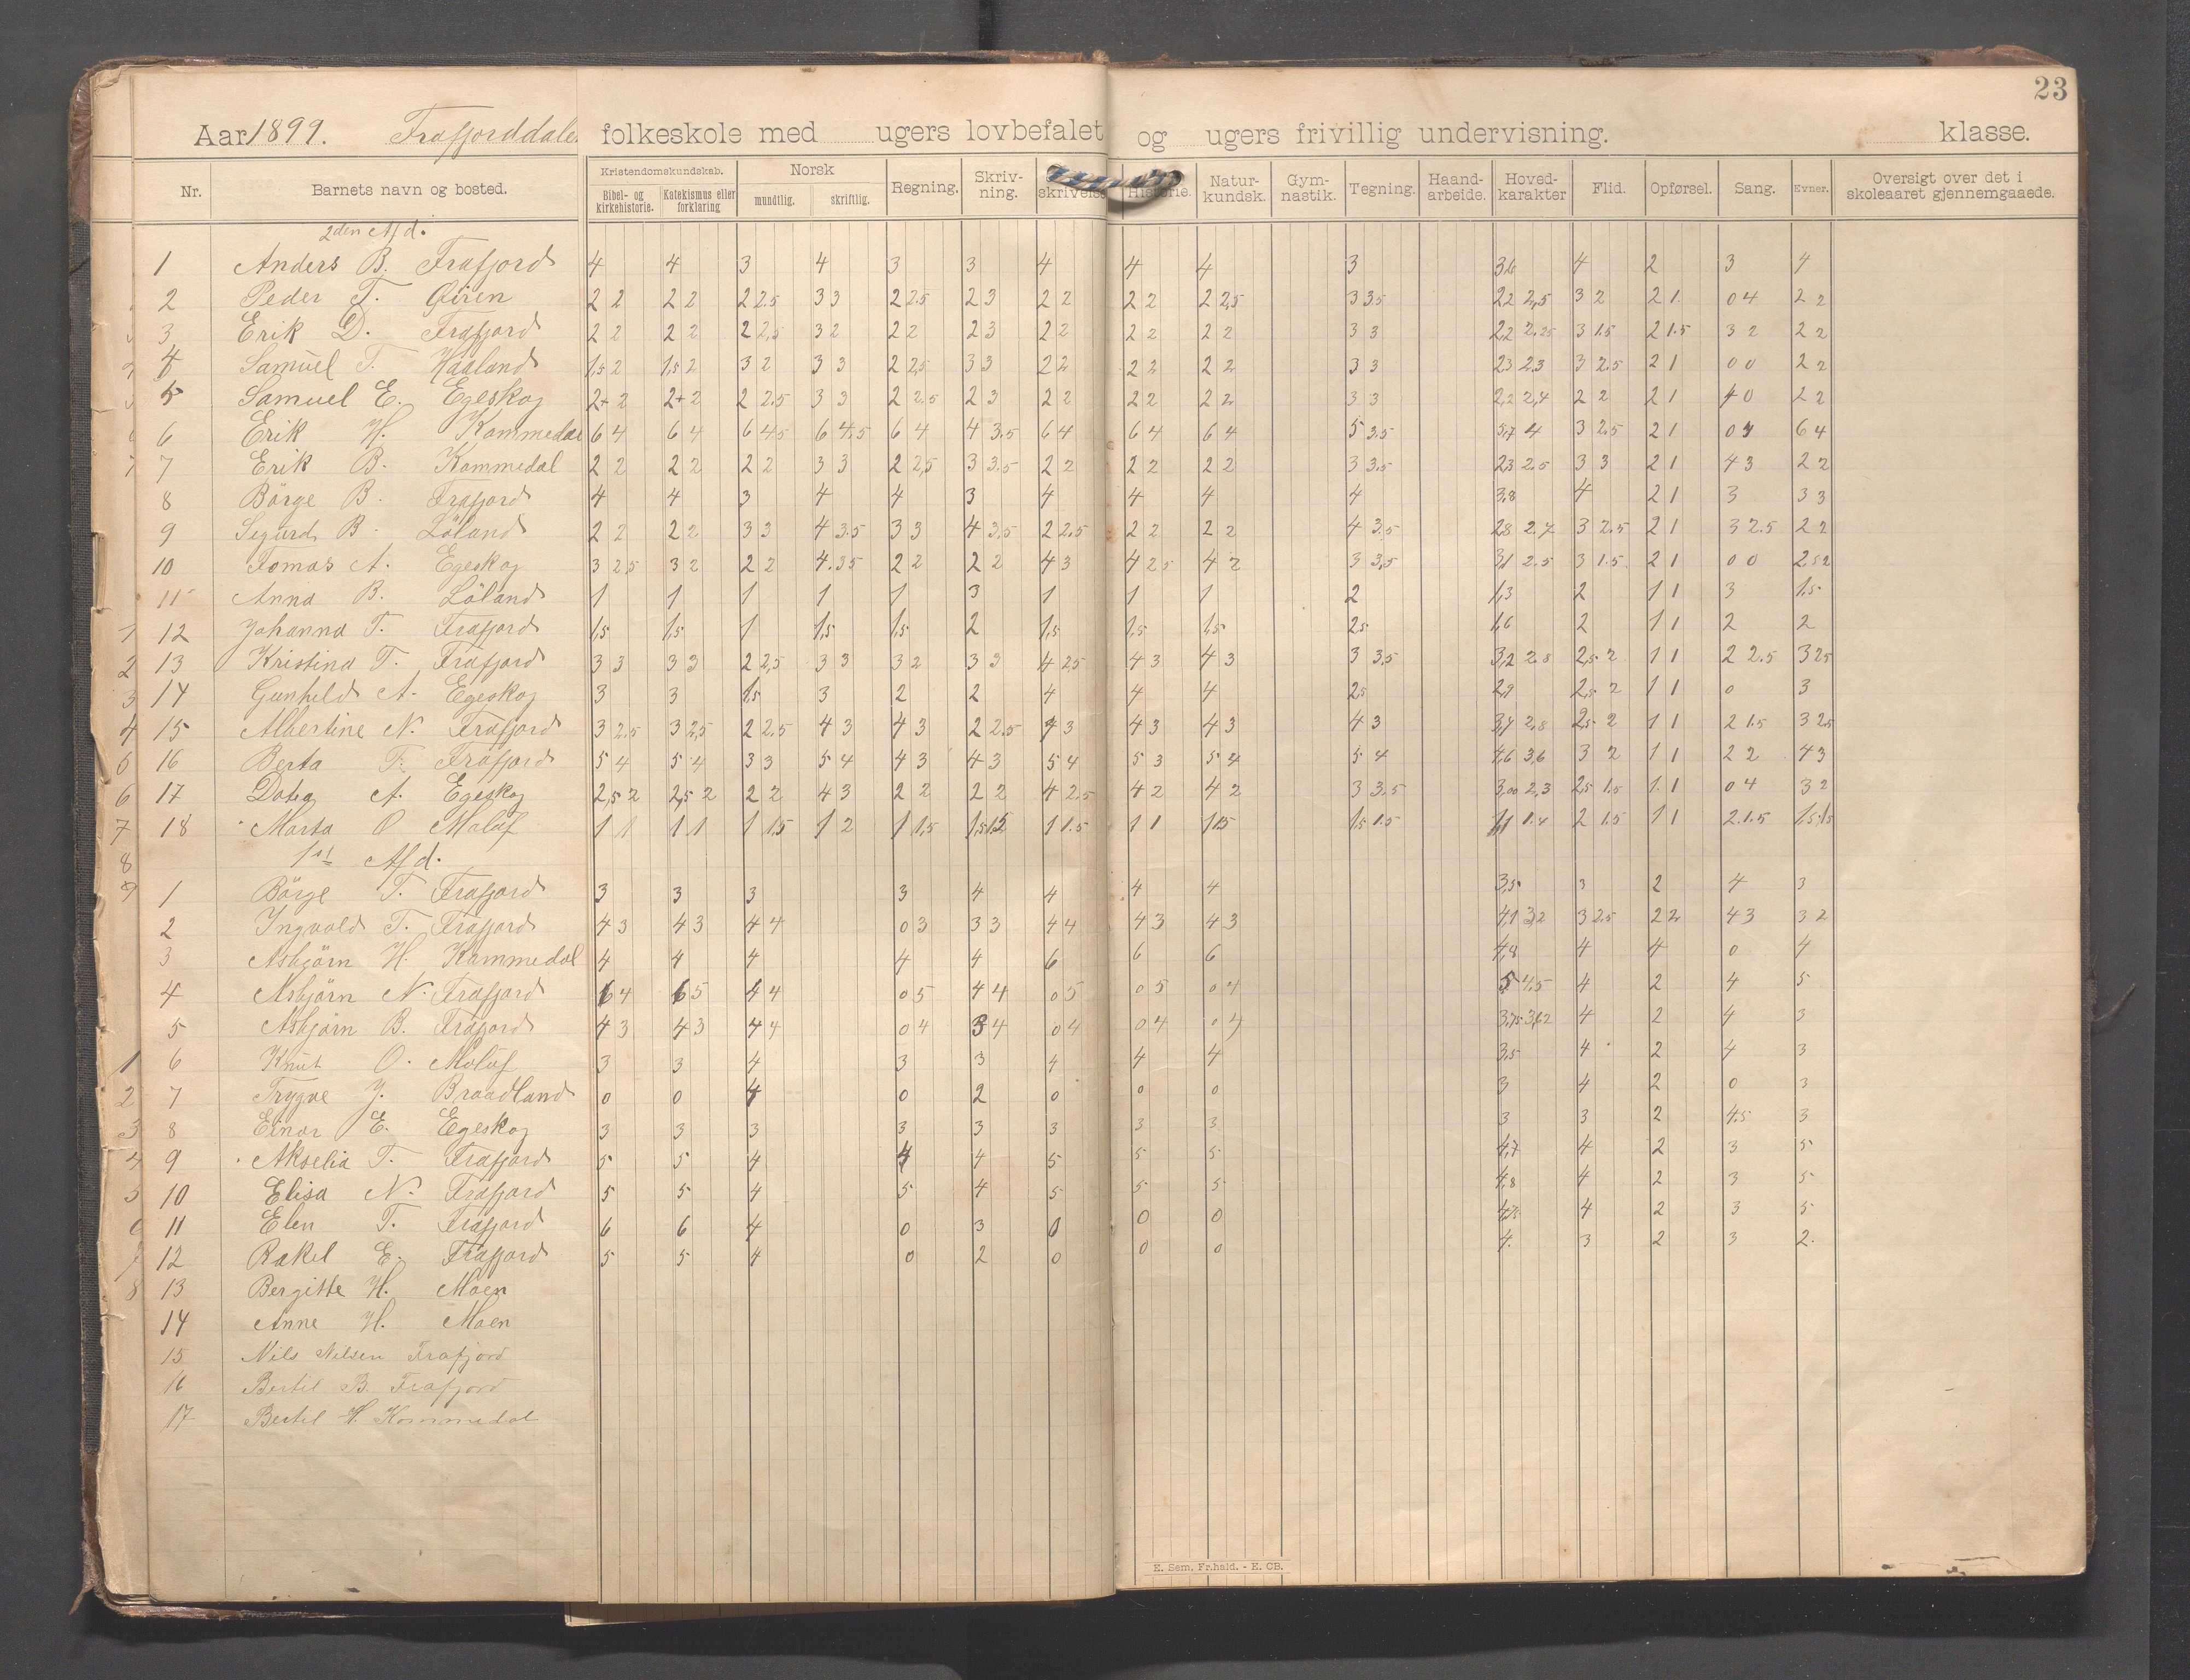 23
Aar 1899. Frafjorddalen folkeskole med ugers lovbefalet og ugers frivillig undervisning. klasse.
Nr. Barnets navn og bosted. Kristendomskundskab. Bibel- og kirkehistorie. Katekismus eller forklaring Norsk mundtlig. skriftlig. Regning. Skriv-ning. Historie. Natur-kundsk. Gym-nastik. Tegning. Haand-arbeide. Hoved-karakter Flid. Opførsel. Sang. Evner. Oversigt over det i skoleaaret gjennemgaaede.
2den Afd.
1 Anders B. Frafjord 4 4 3 4 3 3 4 4 4 3 4 2 3 4
2 Peder T. 2 2 2 2 2 2.5 3 3 2 2.5 2 3 2 2 2 2 2 2,5 3 3.5 2,2 2,5 3 2 2 1. 0 4 2 2
3 Erik D. Frafjord 2 2 2 2 2 2,5 3 2 2 2 2 3 2 2 2 2 2 2 3 3 2,2 2.25 3 1.5 2 1.5 3 2 2 2
4 Samuel T. Haaland 1,5 2 1,5 2 3 2 3 3 2 2,5 3 3 2 2 2 2 2 2 3 3 2,3 2,3 3 2.5 2 1 0 0 2 2
5 Samuel E. Egeskog 2+ 2 2+ 2 2 2.5 3 3 2 2.5 2 3 2 2 2 2 2 2 3 3 2,2 2,4 2 2 2 1 4 0 2 2
6 Erik H. Kommedal 6 4 6 4 6 4.5 6 4.5 6 4 4 3.5 6 4 6 4 6 4 5 3.5 5,7 4 3 2.5 2 1 6 4
7 Erik B. Kommedal 2 2 2 2 2 2 3 3 2 2,5 3 3.5 2 2 2 2 2 2 3 3.5 2,3 2.5 3 3 2 1 4 3 2 2
8 Börge B. Frafjord 4 4 3 4 4 3 4 4 4 4 3,8 4 2 1 3 3 3
9 Sigurd B. Löland 2 2 2 2 3 3 4 3.5 3 3 4 3.5 2 2.5 2 2 2 2 4 3.5 2,8 2.7 3 2.5 2 1 3 2.5 2 2
10 Tomas A. Egeskog 3 2,5 3 2 2 2 4. 3.5 2 2 2 2 4 3 4 2.5 4 2 3 3,5 3,1 2.5 3 1.5 2 1 0 0 2.5 2
11 Anna B. Löland 1 1 1 1 1 3 1 1 1 2 1,3 2 1 1 3 1.5
12 Johanna T. Frafjord 1,5 1,5 1 1,5 1,5 2 1,5 1,5 1,5 2,5 1,6 2 1 1 2 2
13 Kristina T. Frafjord 3 3 3 3 2 2,5 3 3 3 2 3 3 4 2,5 4 3 4 3 3 3.5 3,2 2.8 2,5 2 1 1 2 2.5 3 2.5
14 Gunhild A. Egeskog 3 3 1,5 3 2 2 4 4 4 2,5 2,9 2,5 2 1 1 0 3
15 Albertine N. Frafjord 3 2.5 3 2,5 2 2.5 4 3 4 3 2 2.5 4 3 4 3 4 3 4 3 3,4 2,8 2,5 2 1 1 2 1.5 3 2.5
16 Berta T. Frafjord 5 4 5 4 3 3 5 4 4 3 4 3 5 4 5 3 5 4 5 4 4,6 3,6 3 2 1 1 2 2 4 3
17 A. Egeskog 2,5 2 2,5 2 2 2 4 3 2 2 2 2 4 2.5 4 2 4 2 3 3.5 3,00 2,3 2,5 1.5 1 1 0 4 3 2
18 Marta O. Molauf 1 1 1 1 1 1.5 1 2 1 1,5 1,5 1,5 1 1.5 1 1 1 1.5 1,5 1.5 1,1 1.4 2 1.5 1 1 2. 1.5 1,5 1,5
1st Afd.
1 Börge T. Frafjord 3 3 3 3 4 4 4 4 3,5 3 2 4 3
2 Ingvald T. Frafjord 4 3 4 3 4 4 0 3 3 3 4 4 4 3 4 3 4,1 3,2 3 2.5 2 2 4 3 3 2
3 Asbjörn H. Kommedal 4 4 4 4 4 6 6 6 4,8 4 4 0 4
4 Asbjörn N. Frafjord 6 4 6 5 4 4 0 5 4 4 0 5 0 5 0 4 5 4,5 4 2 4 5
5 Asbjörn B. Frafjord 4 3 4 3 4 4 0 4 3 4 0 4 0 4 0 4 3,75 3,62 4 2 4 3
6 Knut O. Molauf 3 3 4 3 3 4 4 4 3,5 4 2 4 3
7 Trygve J. Braadland 0 0 4 0 2 0 0 0 3 4 2 0 3
8 Einar E. Egeskog 3 3 3 3 3 3 3 3 3 3 2 4.5 3
9 Akselia T. Frafjord 5 5 4 4 4 5 5 5 4,7 4 2 3 5
10 Elisa N. Frafjord 5 5 4 5 4 5 5 5 4,8 4 2 3 5
11 Elen T. Frafjord 6 6 4 0 3 0 0 0 4 2 3 5
12 Rakel E. Frafjord 5 5 4 0 2 0 0 0 4. 3 2 3 2.
13 Bergitte H. Moen
14 Anne H. Moen
15 Nils Nilsen Frafjord
16 Bertil B. Frafjord
17 Bertel H. Kommedal
E. Sem, Fr.hald. - E. CB.